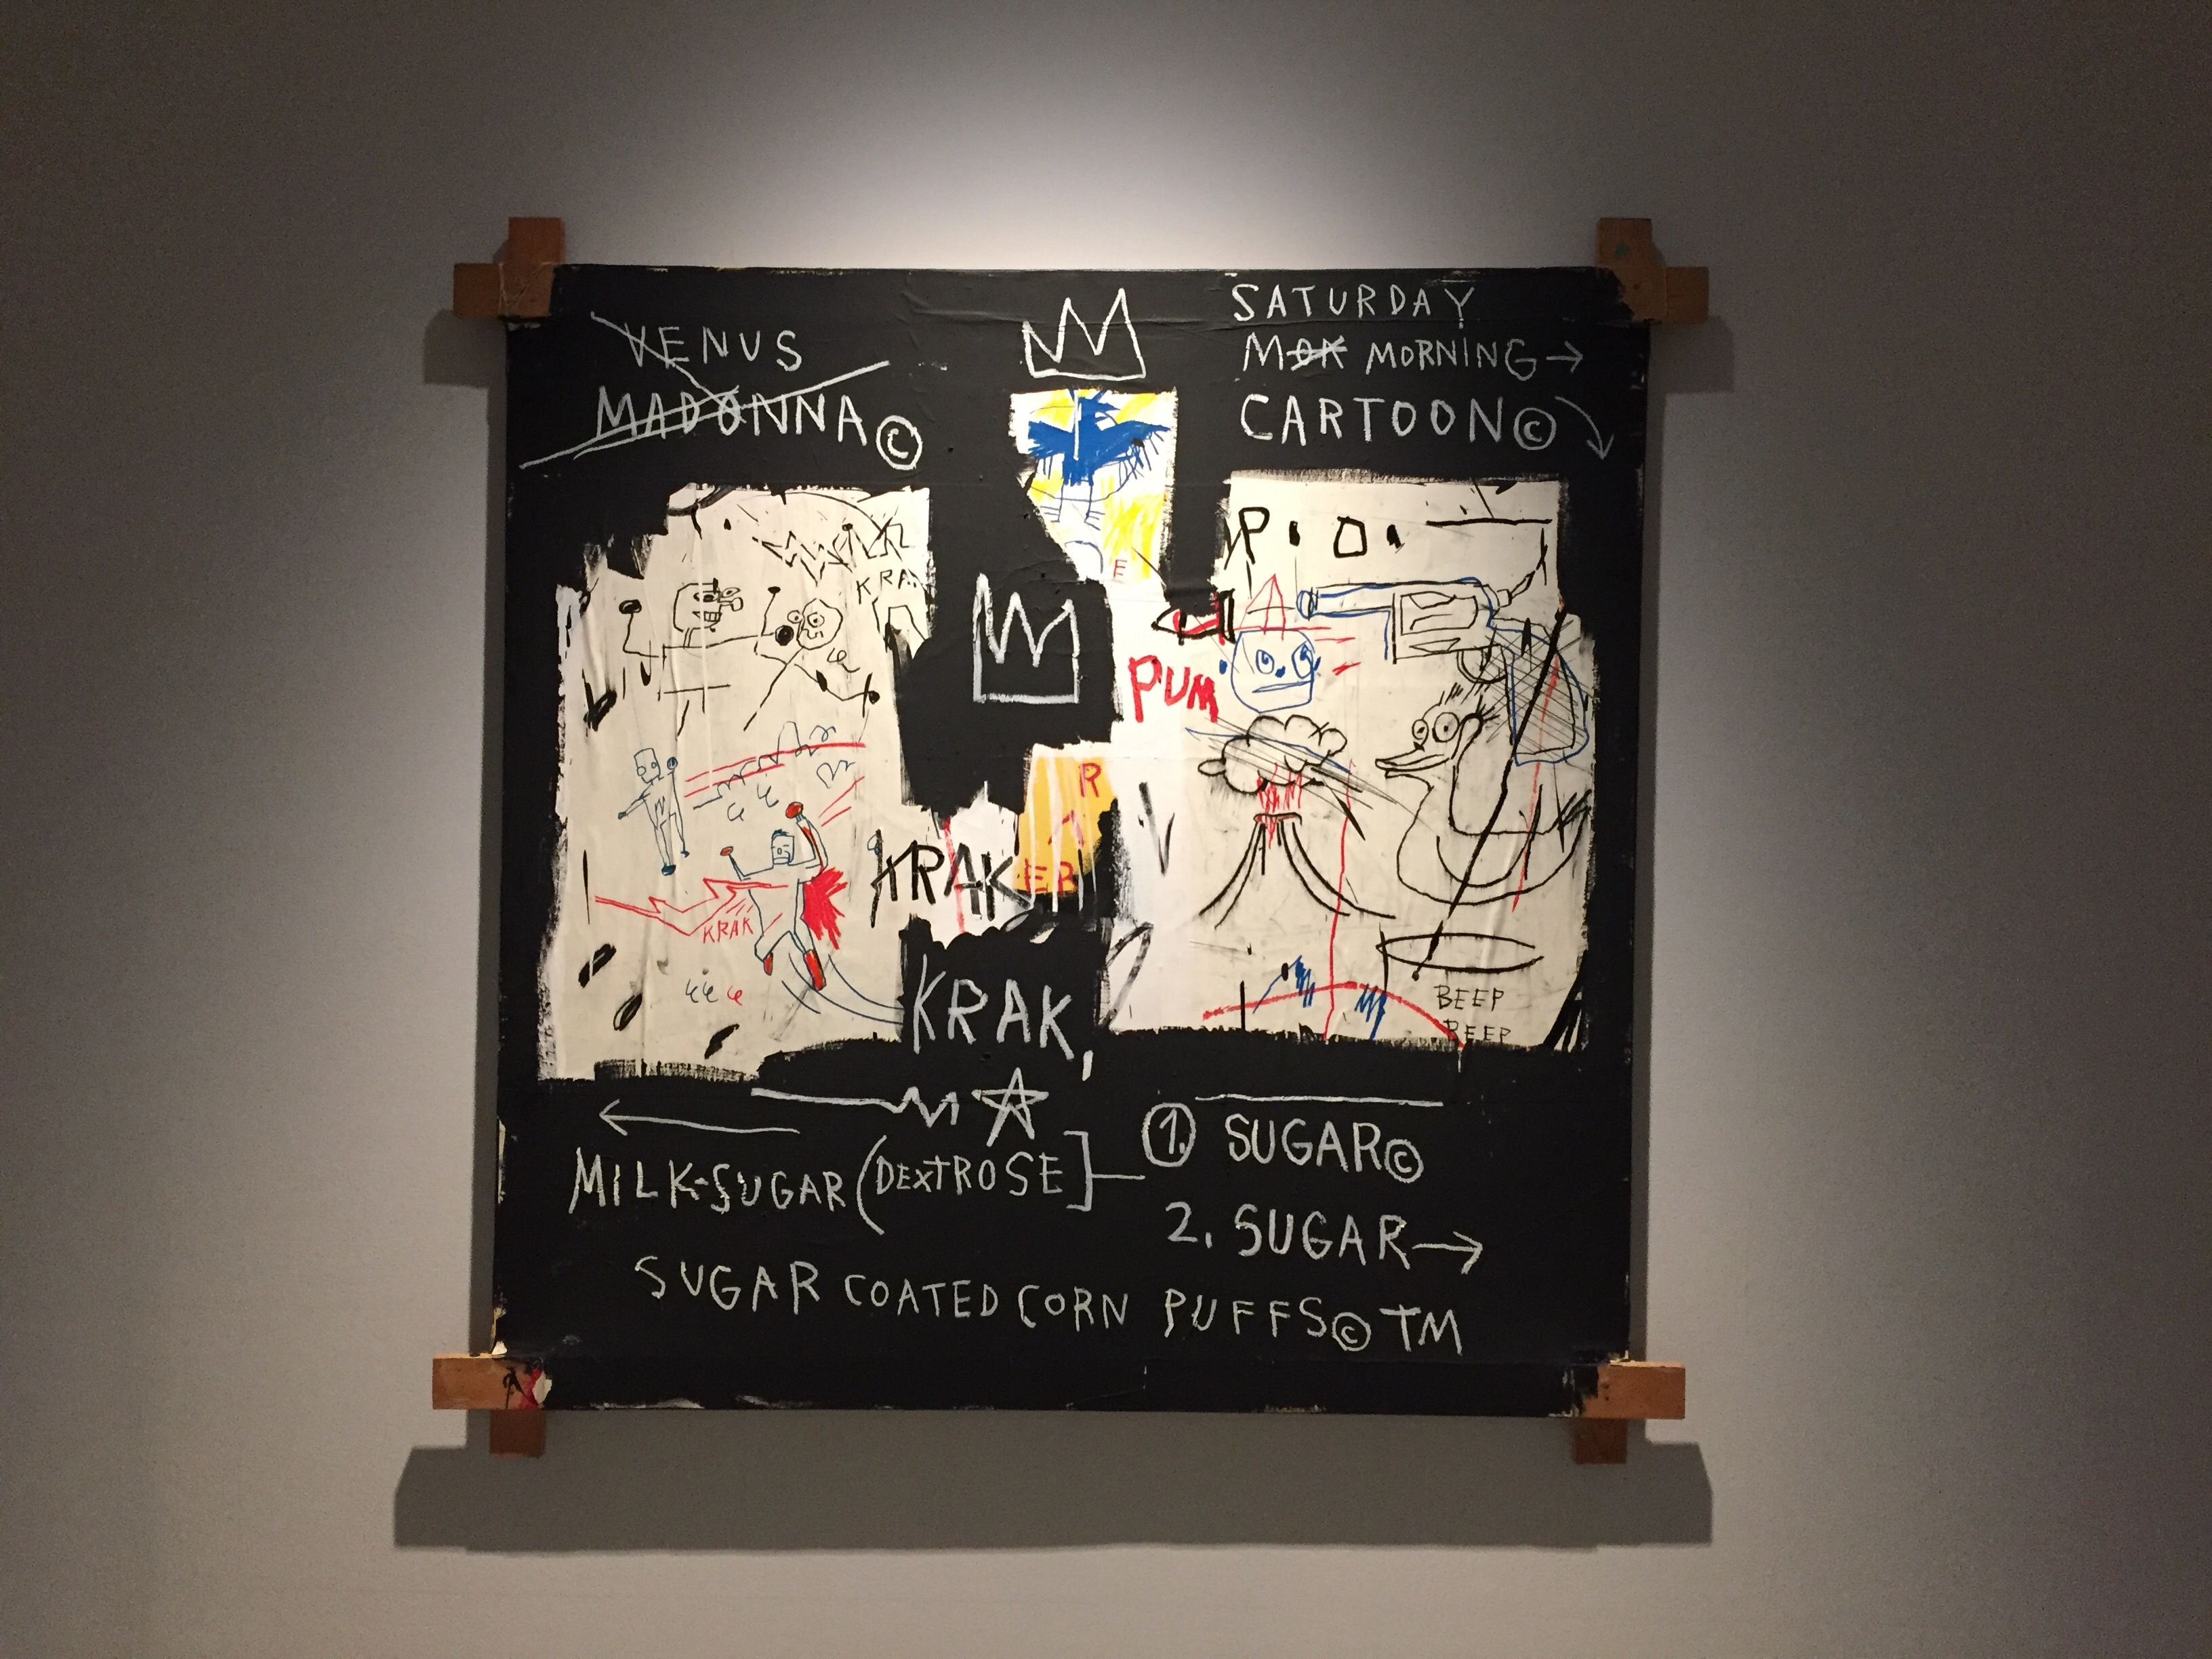 VENUS
MADONNA©
SATURDAY
MOR MORNING→
CARTOON©
P.O.
KRA
E
PUM
R
A
KRAK
ER
KRAK
BEEP
BEEP
KRAK,
MILK-SUGAR (DEXTROSE]
1. SUGAR©
2. SUGAR→
SUGAR COATED CORN PUFFS© TM